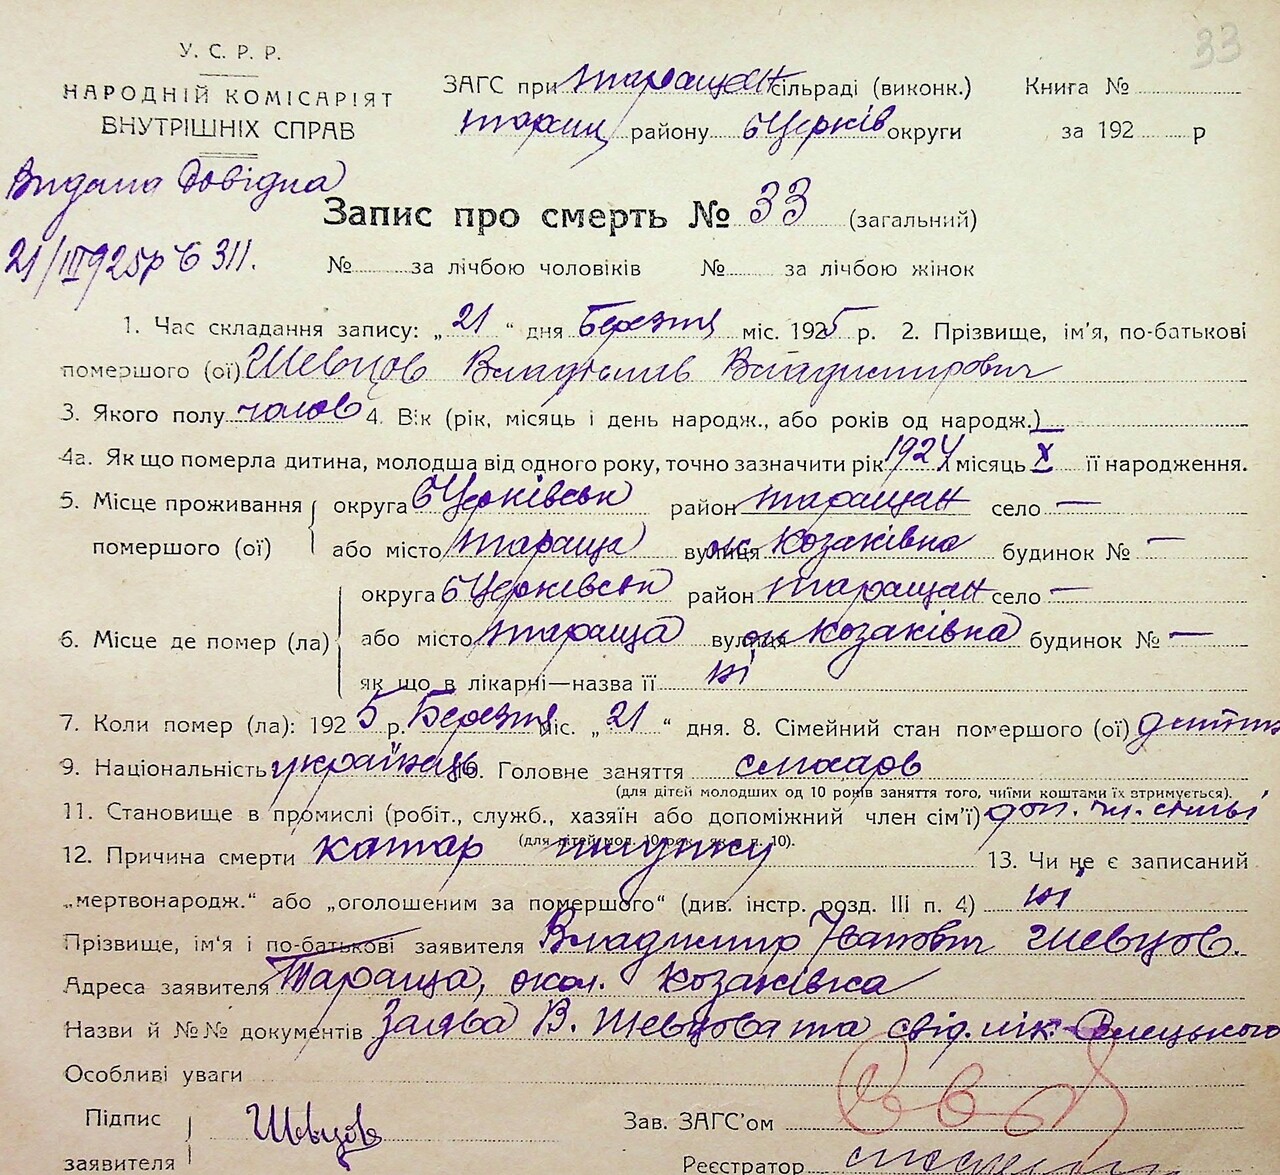 33
У. С. Р. Р.
НАРОДНІЙ КОМІСАРІЯТ
ВНУТРІШНІХ СПРАВ
ЗАГС при Таращан сільраді (виконк.) Книга №
Таращ району БЦерків округи за 192 р
Видана довідка
21/III 925р № 311.
Запис про смерть № 33 (загальний)
№ за лічбою чоловіків № за лічбою жінок
1. Час складання запису: „21“ дня Березня міс. 1925 р. 2. Прізвище, ім'я, по-батькові
помершого (ої) Шевцов Владіслав Владимирович
3. Якого полу чолов 4. Вік (рік, місяць і день народж., або років од народж.) —
4а. Як що померла дитина, молодша від одного року, точно зазначити рік 1924 місяць X її народження.
5. Місце проживання округа БЦерківськ район Таращан село —
помершого (ої) або місто Тараща вулиця ок Козаківка будинок № —
округа БЦерківськ район Таращан село —
6. Місце де помер (ла) або місто Тараща вулиця ок Козаківка будинок № —
як що в лікарні—назва її ні
7. Коли помер (ла): 1925 р. Березня міс. „21“ дня. 8. Сімейний стан помершого (ої) дитина
9. Національність українець 10. Головне заняття столяров
(для дітей молодших од 10 років заняття того, чиїми коштами їх втримується).
11. Становище в промислі (робіт., служб., хазяїн або допоміжний член сім'ї) доп. чл. сім'ї
(для дітей мол. 10 рок. як в п. 10).
12. Причина смерти катар шлунку 13. Чи не є записаний
„мертвонародж.“ або „оголошеним за помершого“ (див. інстр. розд. III п. 4) ні
Прізвище, ім'я і по-батькові заявителя Владимир Іванович Шевцов.
Адреса заявителя Тараща, окол. Козаківка
Назви й №№ документів Заява В. Шевцова та свід. лік.
Особливі уваги
Підпис Шевцов Зав. ЗАГС'ом
заявителя Реєстратор